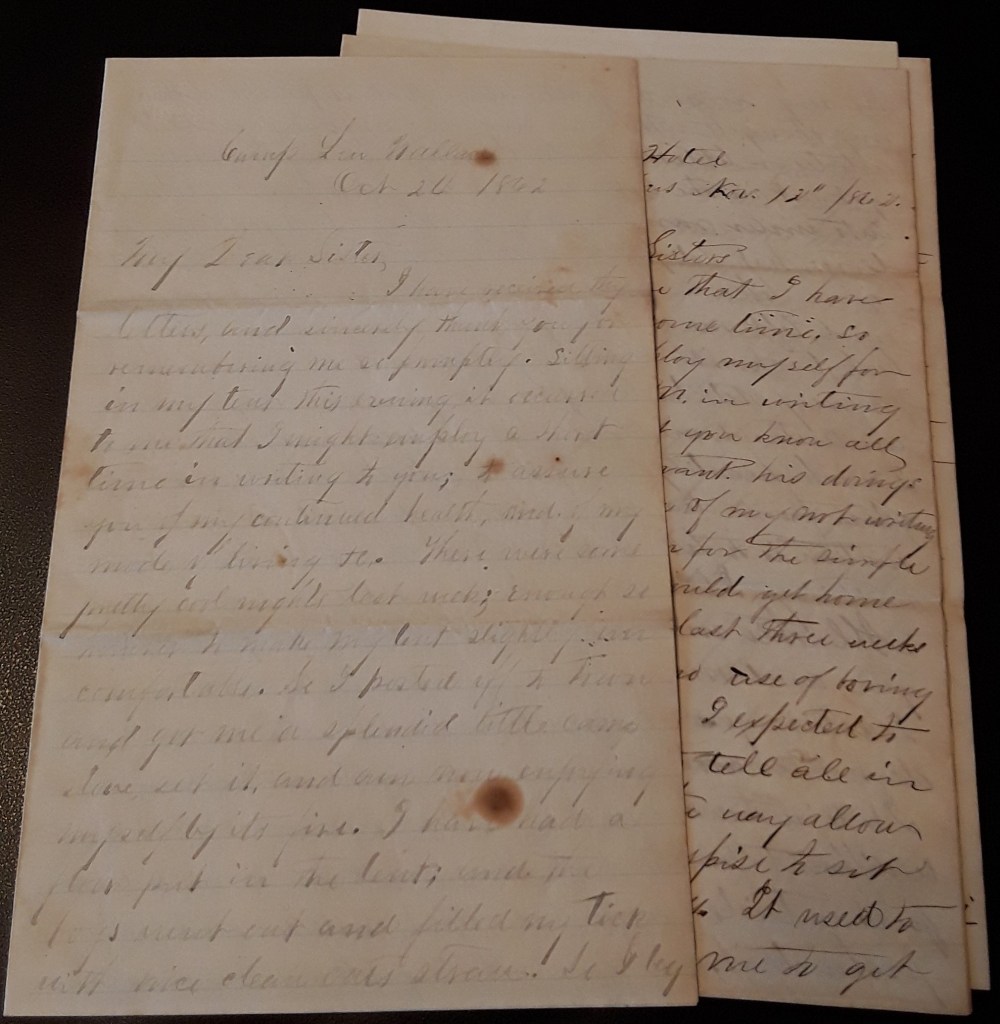 Camp Lew Wallace
Oct 26 1862
My Dear Sister,
I have received thy
letters, and sincerely thank you for
remembering me so promptly. Sitting
in my tent this evening it occurred
to me that I might employ a short
time in writing to you; to assure
you of my continued health, and of my
mode of living &c. There were some
pretty cool nights last week; enough so
to make my tent slightly
comfortable. So I posted off to town
and got me a splendid little camp
stove, set it, and am now enjoying
myself by its fire. I have had a
floor put in the tent; and the
boys went out and filled my tick
with nice clean oats straw! So I
Hotel
us Nov. 12" 1862.
Sisters
that I have
ome time, so
ploy myself for
in writing
you know all
want his doings
of my not writing
for the simple
ould get home
last three weeks
use of boring
I expected to
tell all in
way allow
spise to sit
It used to
me to get